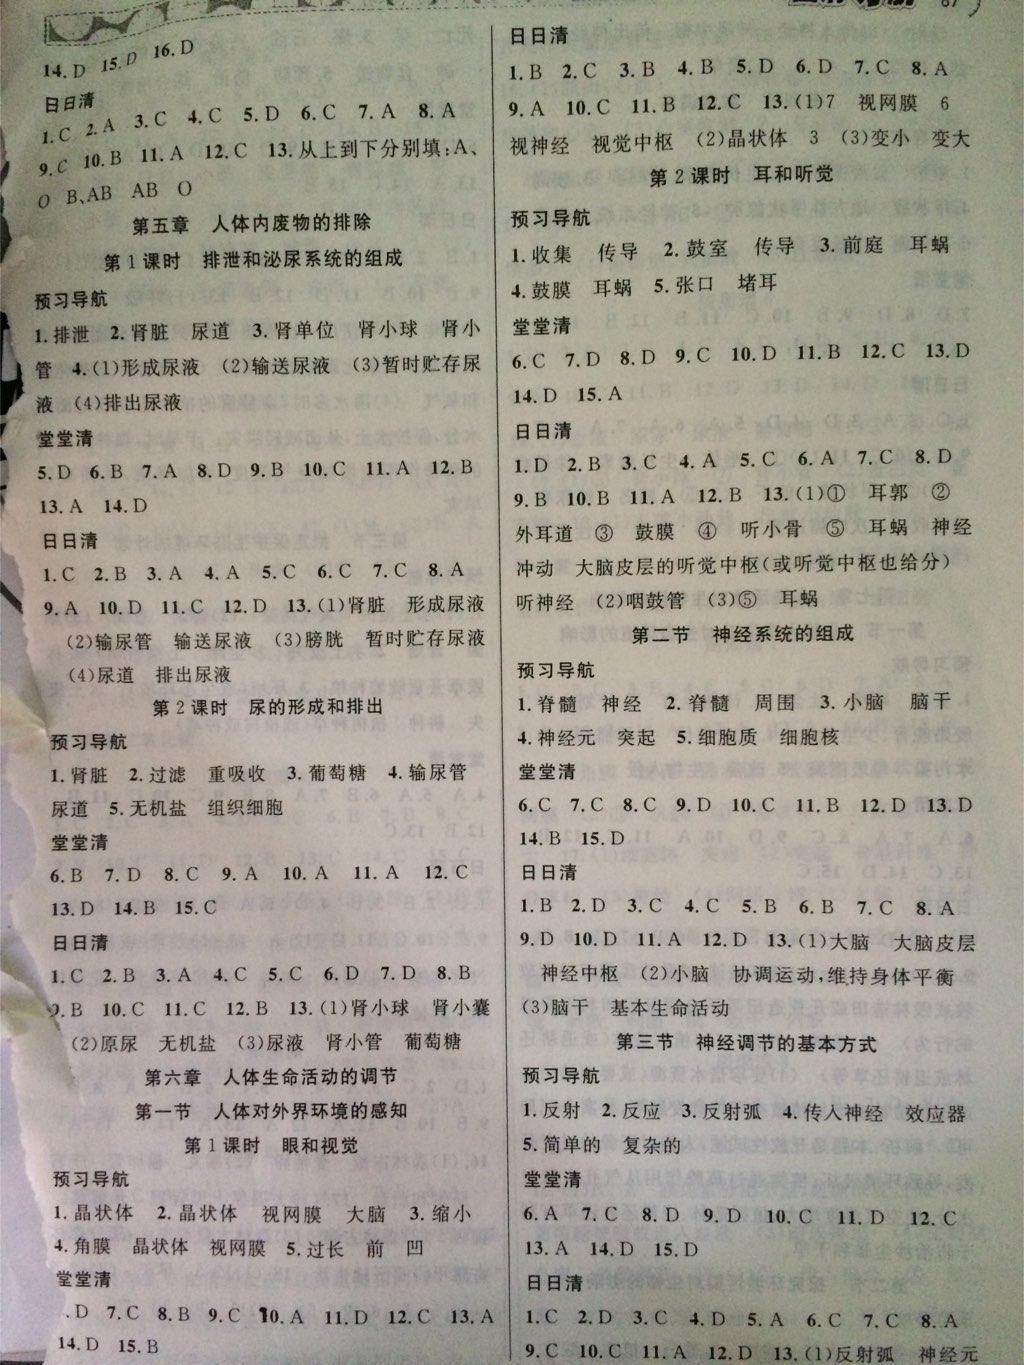 14.D 15.D 16.D
日日清
1.C 2.A 3.C 4.C 5.D 6.C 7.A 8.A
9.C 10.B 11.A 12.C 13.从上到下分别填:A、
O B、AB AB O
第五章 人体内废物的排除
第1课时 排泄和泌尿系统的组成
预习导航
1.排泄 2.肾脏 尿道 3.肾单位 肾小球 肾小
管 4.(1)形成尿液 (2)输送尿液 (3)暂时贮存尿
液 (4)排出尿液
堂堂清
5.D 6.B 7.A 8.D 9.B 10.C 11.A 12.B
13.A 14.D
日日清
1.C 2.B 3.A 4.A 5.C 6.C 7.C 8.A
9.A 10.D 11.C 12.D 13.(1)肾脏 形成尿液
(2)输尿管 输送尿液 (3)膀胱 暂时贮存尿液
(4)尿道 排出尿液
第2课时 尿的形成和排出
预习导航
1.肾脏 2.过滤 重吸收 3.葡萄糖 4.输尿管
尿道 5.无机盐 组织细胞
堂堂清
6.B 7.D 8.C 9.A 10.A 11.A 12.C
13.D 14.B 15.C
日日清
1.C 2.B 3.A 4.C 5.C 6.D 7.D 8.B
9.B 10.C 11.C 12.B 13.(1)肾小球 肾小囊
(2)原尿 无机盐 (3)尿液 肾小管 葡萄糖
第六章 人体生命活动的调节
第一节 人体对外界环境的感知
第1课时 眼和视觉
预习导航
1.晶状体 2.晶状体 视网膜 大脑 3.缩小
4.角膜 晶状体 视网膜 5.过长 前 凹
堂堂清
.D 7.C 8.B 9.C 10.A 11.D 12.C 13.A
14.D 15.B
日日清
1.B 2.C 3.B 4.B 5.D 6.D 7.C 8.A
9.A 10.C 11.B 12.C 13.(1)7 视网膜 6
视神经 视觉中枢 (2)晶状体 3 (3)变小 变大
第2课时 耳和听觉
预习导航
1.收集 传导 2.鼓室 传导 3.前庭 耳蜗
4.鼓膜 耳蜗 5.张口 堵耳
堂堂清
6.C 7.D 8.D 9.C 10.D 11.B 12.C 13.D
14.D 15.A
日日清
1.D 2.B 3.C 4.A 5.C 6.A 7.C 8.D
9.B 10.B 11.A 12.B 13.(1)① 耳郭 ②
外耳道 ③ 鼓膜 ④ 听小骨 ⑤ 耳蜗 神经
冲动 大脑皮层的听觉中枢(或听觉中枢也给分)
听神经 (2)咽鼓管 (3)⑤ 耳蜗
第二节 神经系统的组成
预习导航
1.脊髓 神经 2.脊髓 周围 3.小脑 脑干
4.神经元 突起 5.细胞质 细胞核
堂堂清
6.C 7.C 8.C 9.D 10.D 11.B 12.D 13.D
14.B 15.D
日日清
1.B 2.D 3.C 4.C 5.B 6.B 7.C 8.A
9.D 10.D 11.A 12.D 13.(1)大脑 大脑皮层
神经中枢 (2)小脑 协调运动,维持身体平衡
(3)脑干 基本生命活动
第三节 神经调节的基本方式
预习导航
1.反射 2.反应 3.反射弧 4.传入神经 效应器
5.简单的 复杂的
堂堂清
6.A 7.C 8.D 9.D 10.D 11.D 12.C
13.A 14.D 15.D
日日清
1.C 2.D 3.C 4.D 5.C 6.B 7.C 8.A
9.C 10.C 11.D 12.D 13.(1)反射弧 神经元